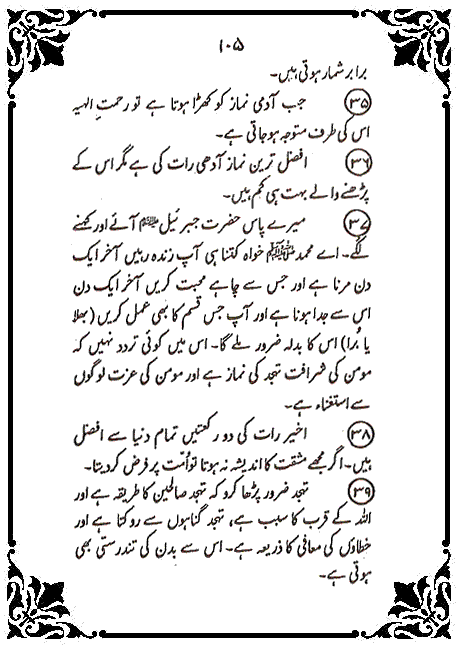 ۱۰۵
برابر شمار ہوتی ہیں۔
۳۵ جب آدمی نماز کو کھڑا ہوتا ہے تو رحمتِ الہیہ
اس کی طرف متوجہ ہو جاتی ہے۔
۳۶ افضل ترین نماز آدھی رات کی ہے مگر اس کے
پڑھنے والے بہت ہی کم ہیں۔
۳۷ میرے پاس حضرت جبرئیل ﷺ آئے اور کہنے
لگے۔ اے محمد ﷺ خواہ کتنا ہی آپ زندہ رہیں آخر ایک
دن مرنا ہے اور جس سے چاہے محبت کریں آخر ایک دن
اس سے جدا ہونا ہے اور آپ جس قسم کا بھی عمل کریں (بھلا
یا بُرا) اس کا بدلہ ضرور ملے گا۔ اس میں کوئی تردد نہیں کہ
مومن کی شرافت تہجد کی نماز ہے اور مومن کی عزت لوگوں
سے استغناء ہے۔
۳۸ اخیر رات کی دو رکعتیں تمام دنیا سے افضل
ہیں۔ اگر مجھے مشقت کا اندیشہ نہ ہوتا تو اُمّت پر فرض کر دیتا۔
۳۹ تہجد ضرور پڑھا کرو کہ تہجد صالحین کا طریقہ ہے اور
اللہ کے قرب کا سبب ہے، تہجد گناہوں سے روکتا ہے اور
خطاؤں کی معافی کا ذریعہ ہے۔ اس سے بدن کی تندرستی بھی
ہوتی ہے۔